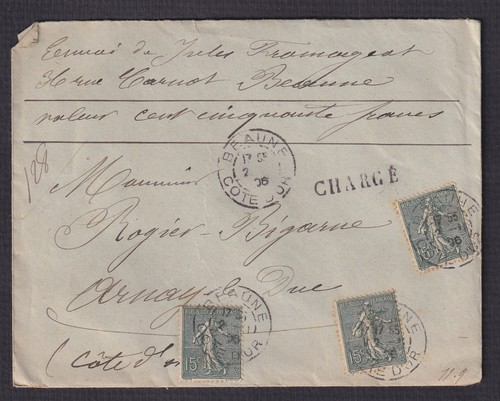 Envoi de Jules Fromageot
36 rue Carnot Beaune
valeur cent cinquante francs
128
BEAUNE
17 55
2
06
COTE D'OR
CHARGÉ
Monsieur
Rogier-Bigarne
Arnay-le-Duc
(Côte d'or
BEAUNE
15
15
15
CÔTE D'OR
11.9